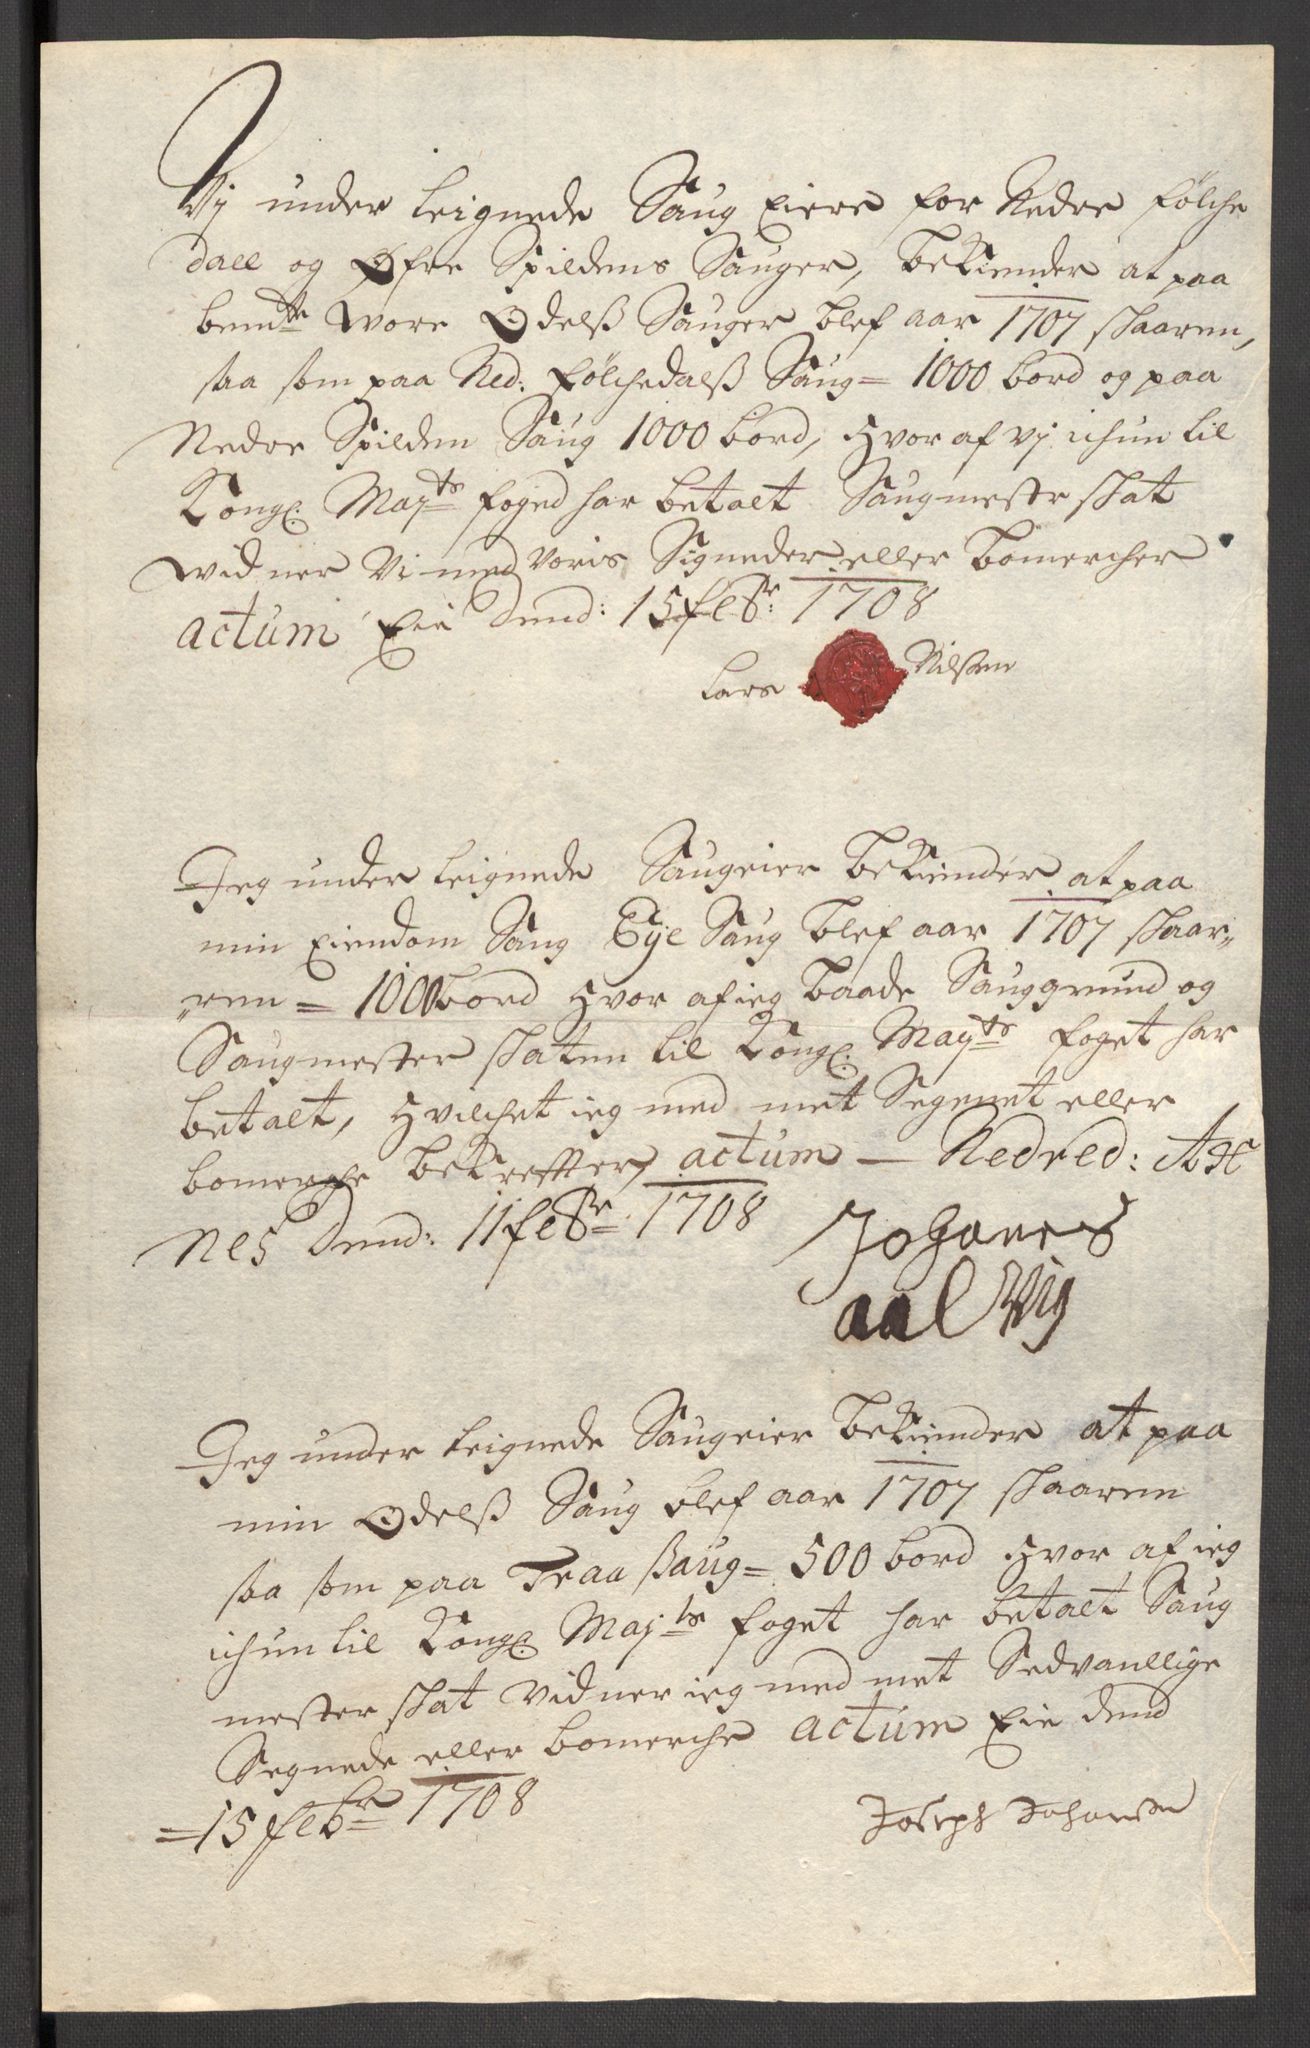 Vj under teignede Saug Eiere for Nedre Fölche
dall og Øfre Spildens Sauger, bekiender at paa
bemte wore Odelß Sauger blef aar 1707 skaaren,
saa som paa Ned: Fölchedalß Saug = 1000 bord og paa
Nedre Spilden Saug 1000 bord, Hvor af vj ichun til
Kongl: Mayts foged har betalt Saugmester skat
widner Vi med voris Signeder eller bomercher
actum Eie dend: 15 febr: 1708
Lars Nilsen
Jeg under teignede Saugeier bekiender at paa
min Eiendom Saug Eye Saug blef aar 1707 skaar„
„ren = 1000 bord Hvor af ieg baade Sauggrund og
Saugmester skaten til Kongl: Mayts foget har
betalt, Hvilchet ieg med met Segenet eller
bomerche bekreffter, actum — Nedred:
Nes dend: 11 febr 1708
Johanes
aalwig
Jeg under teignede Saugeier bekiender at paa
min Odelß Saug blef aar 1707 skaaren
saa som paa Traa Saug = 500 bord Hvor af ieg
ichun til Kongl: Majts foget har betalt Saug
mester skat vidner ieg med met Sedvanllige
Segnede eller bomerche actum Eie dend
= 15 febr 1708
Joseph Johansen